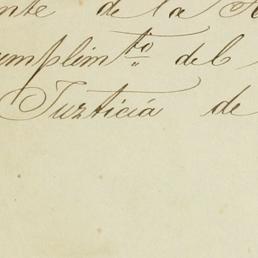 nte de la
umplimto del
Justicia de